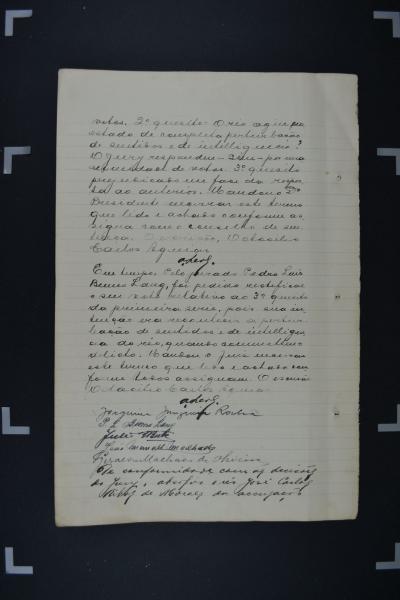 votos. 2º quesito: O réo agiu por
estado de completa perturbação
de sentidos e de intelligencia?
O jury respondeu - sim - por una
nimidade de votos. 3º quesito
prejudicado em face da respos
ta ao anterior. Mandou
Presidente encerrar este termo
que lido e achado conforme as
signa com o conselho de sen
tença. O escrivão, Octacilio
Carlos
Em tempo. Pelo jurado Pedro Luis
Bueno Lang, foi pedido rectificar
o seu voto relativo ao 3º quesito
da primeira serie, pois sua in
tenção era reconhecer a pertur
bação de sentidos e de intelligen
cia do réo, quando commetteu
o delicto. Mandou o juiz encerrar
este termo que lido e achado con
forme todos assignam. O escrivão
Octacilio Carlos
Joaquim Rocha
P. L. Bueno Lang
José Manoel Machado
Machado de Oliveira
De conformidade com as decisões
do Jury, absolvo o réo José Carlos
de Moraes da accusação